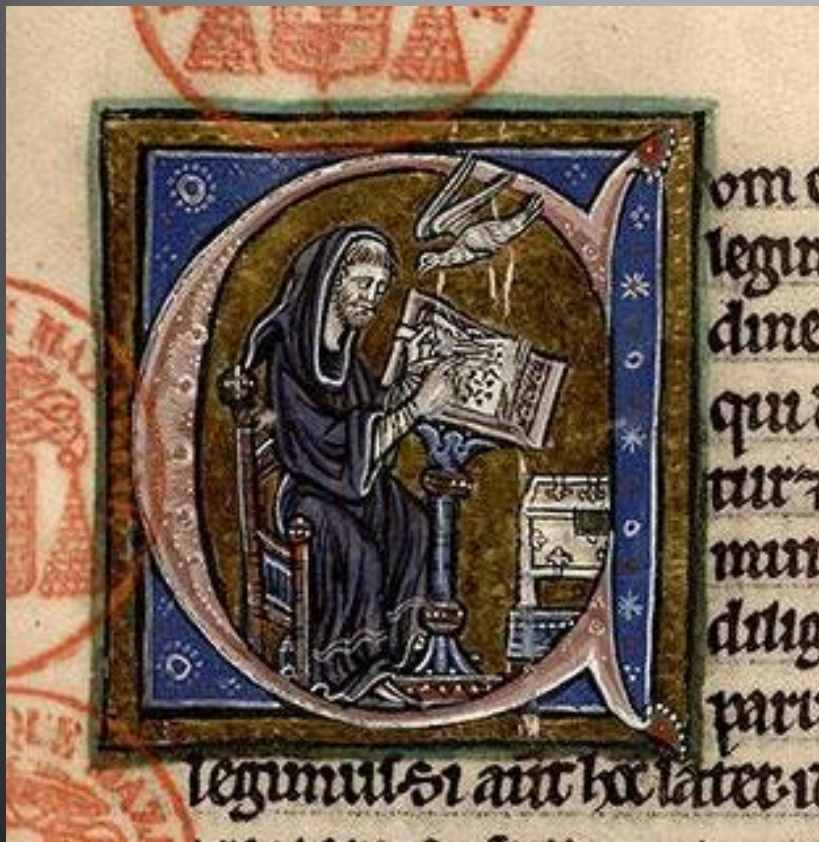 C
om
legim
dine
qui
tur
mun
dilig
parv
legimus·Si aūt hoc latet·
E MAZ
QUE MAZ